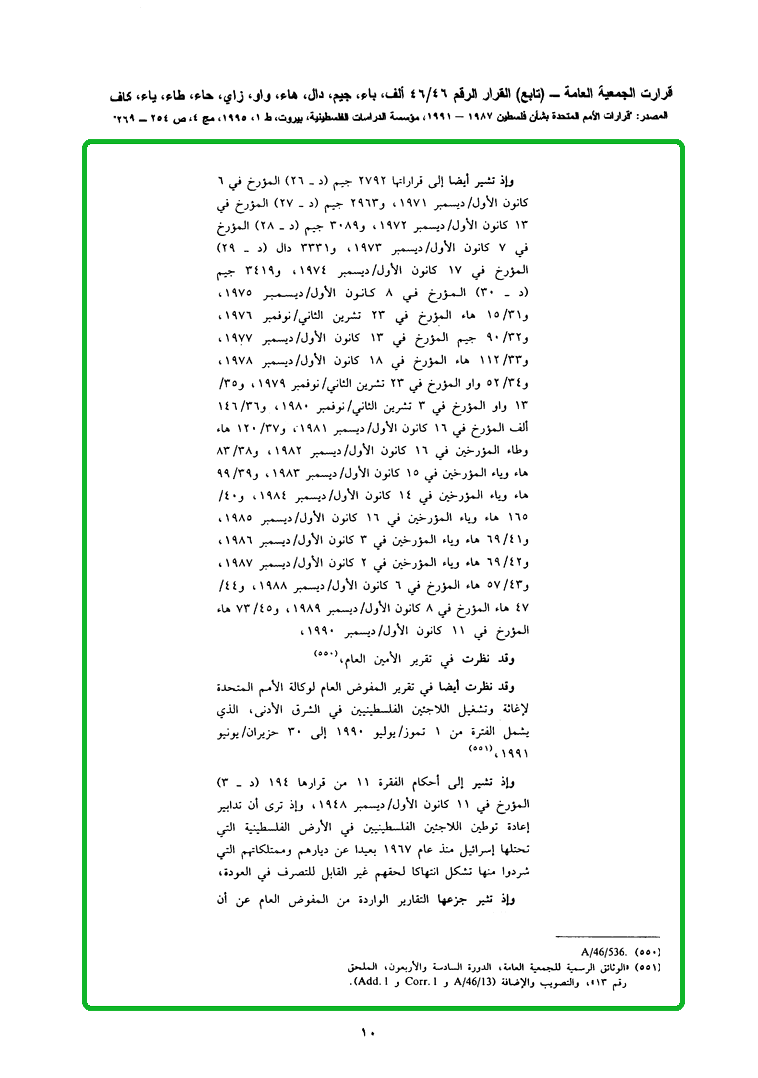 قرارت الجمعية العامة — (تابع) القرار الرقم ٤٦/٤٦ ألف، باء، جيم، دال، هاء، واو، زاي، حاء، طاء، ياء، كاف
المصدر: "قرارات الأمم المتحدة بشأن فلسطين ١٩٨٧ – ١٩٩١، مؤسسة الدراسات الفلسطينية، بيروت، ط ١، ١٩٩٥، مج ٤، ص ٢٥٤ – ٢٦٩"
وإذ تشير أيضا إلى قراراتها ٢٧٩٢ جيم (د ـ ٢٦) المؤرخ في ٦
كانون الأول/ديسمبر ١٩٧١، و٢٩٦٣ جيم (د ـ ٢٧) المؤرخ في
١٣ كانون الأول/ديسمبر ١٩٧٢، و٣٠٨٩ جيم (د ـ ٢٨) المؤرخ
في ٧ كانون الأول/ديسمبر ١٩٧٣، و٣٣٣١ دال (د ـ ٢٩)
المؤرخ في ١٧ كانون الأول/ديسمبر ١٩٧٤، و٣٤١٩ جيم
(د ـ ٣٠) المؤرخ في ٨ كانون الأول/ديسمبر ١٩٧٥،
و٣١/١٥ هاء المؤرخ في ٢٣ تشرين الثاني/نوفمبر ١٩٧٦،
و٣٢/٩٠ جيم المؤرخ في ١٣ كانون الأول/ديسمبر ١٩٧٧،
و٣٣/١١٢ هاء المؤرخ في ١٨ كانون الأول/ديسمبر ١٩٧٨،
و٣٤/٥٢ واو المؤرخ في ٢٣ تشرين الثاني/نوفمبر ١٩٧٩، و٣٥/
١٣ واو المؤرخ في ٣ تشرين الثاني/نوفمبر ١٩٨٠، و٣٦/١٤٦
ألف المؤرخ في ١٦ كانون الأول/ديسمبر ١٩٨١، و٣٧/١٢٠ هاء
وطاء المؤرخين في ١٦ كانون الأول/ديسمبر ١٩٨٢، و٣٨/٨٣
هاء وياء المؤرخين في ١٥ كانون الأول/ديسمبر ١٩٨٣، و٣٩/٩٩
هاء وياء المؤرخين في ١٤ كانون الأول/ديسمبر ١٩٨٤، و٤٠/
١٦٥ هاء وياء المؤرخين في ١٦ كانون الأول/ديسمبر ١٩٨٥،
و٤١/٦٩ هاء وياء المؤرخين في ٣ كانون الأول/ديسمبر ١٩٨٦،
و٤٢/٦٩ هاء وياء المؤرخين في ٢ كانون الأول/ديسمبر ١٩٨٧،
و٤٣/٥٧ هاء المؤرخ في ٦ كانون الأول/ديسمبر ١٩٨٨، و٤٤/
٤٧ هاء المؤرخ في ٨ كانون الأول/ديسمبر ١٩٨٩، و٤٥/٧٣ هاء
المؤرخ في ١١ كانون الأول/ديسمبر ١٩٩٠،
وقد نظرت في تقرير الأمين العام،(٥٥٠)
وقد نظرت أيضا في تقرير المفوض العام لوكالة الأمم المتحدة
لإغاثة وتشغيل اللاجئين الفلسطينيين في الشرق الأدنى، الذي
يشمل الفترة من ١ تموز/يوليو ١٩٩٠ إلى ٣٠ حزيران/يونيو
١٩٩١،(٥٥١)
وإذ تشير إلى أحكام الفقرة ١١ من قرارها ١٩٤ (د ـ ٣)
المؤرخ في ١١ كانون الأول/ديسمبر ١٩٤٨، وإذ ترى أن تدابير
إعادة توطين اللاجئين الفلسطينيين في الأرض الفلسطينية التي
تحتلها إسرائيل منذ عام ١٩٦٧ بعيدا عن ديارهم وممتلكاتهم التي
شردوا منها تشكل انتهاكا لحقهم غير القابل للتصرف في العودة،
وإذ تثير جزعها التقارير الواردة من المفوض العام عن أن
(٥٥٠) A/46/536.
(٥٥١) «الوثائق الرسمية للجمعية العامة، الدورة السادسة والأربعون، الملحق
رقم ١٣»، والتصويب والإضافة (A/46/13 و Corr. 1 و Add. 1).
١٠